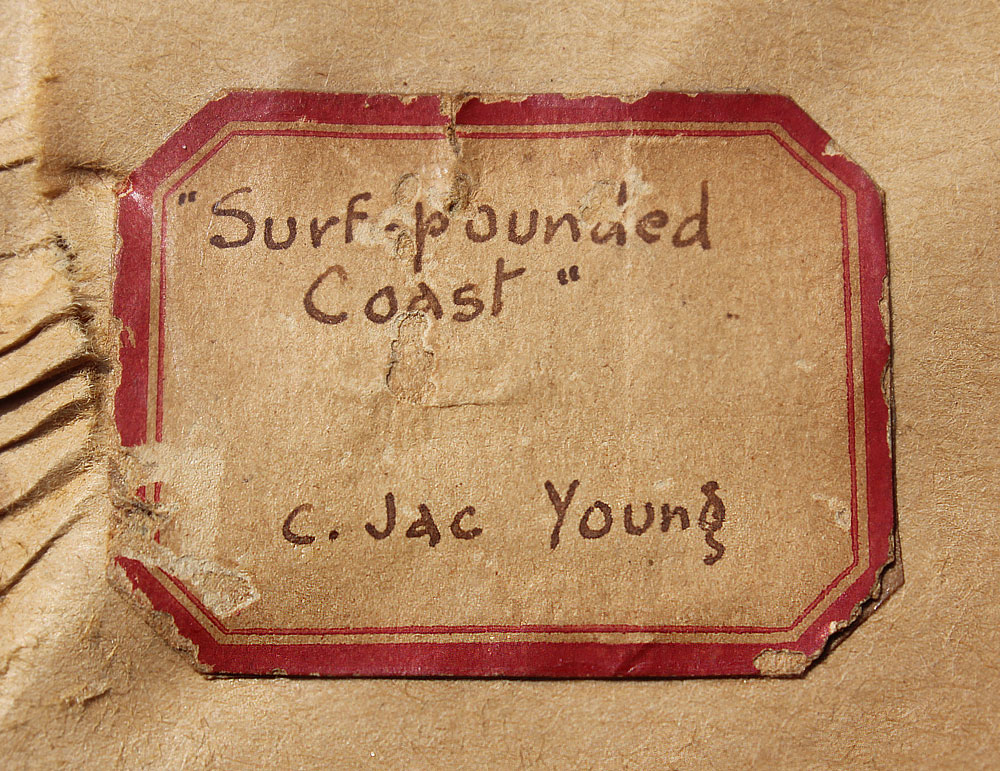 "Surf-pounded
Coast"
C. Jac Young